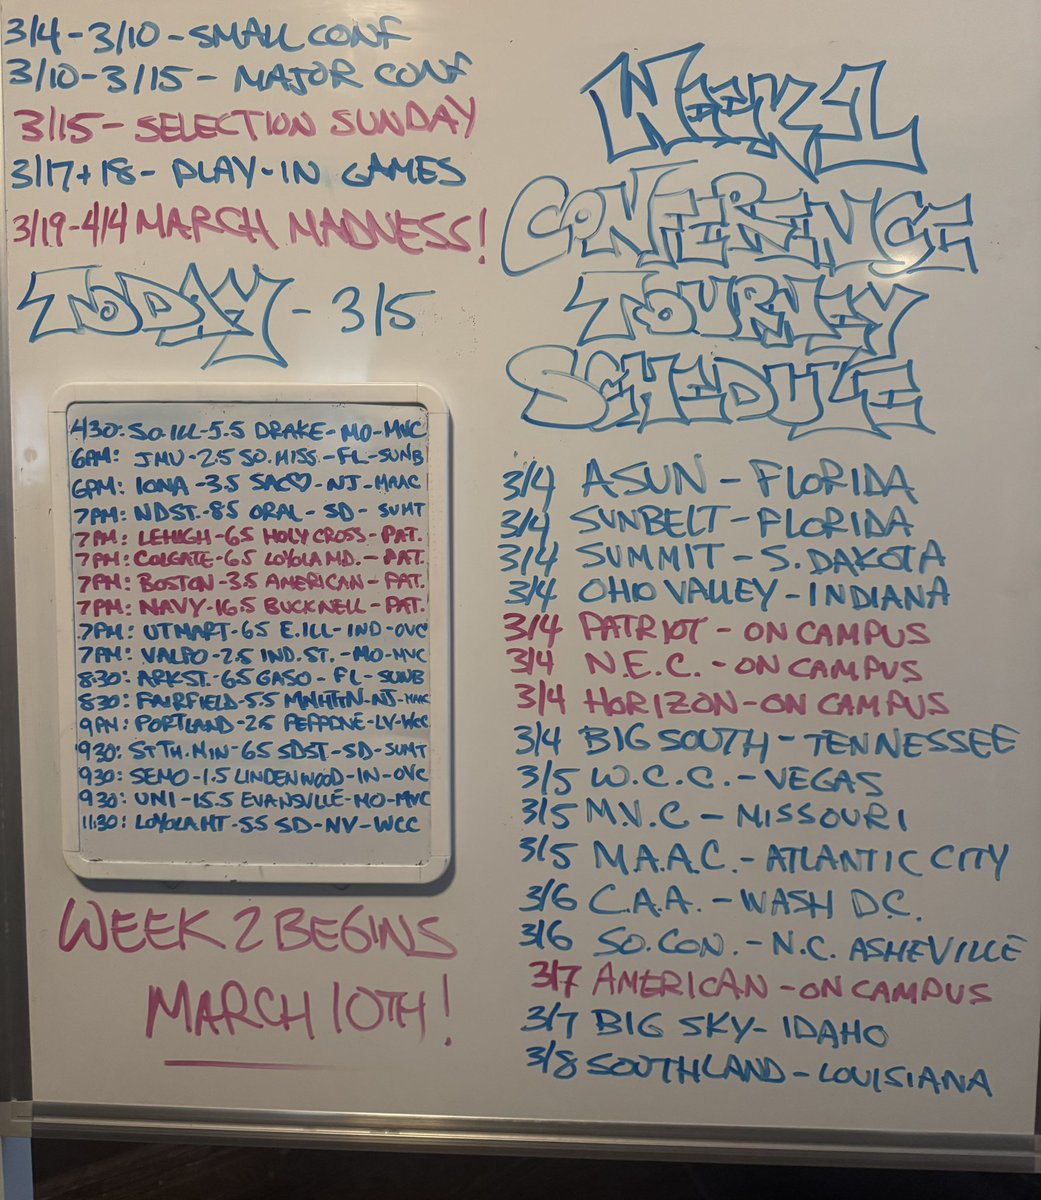 3/4-3/10-SMALL CONF
3/10-3/15- MAJOR CONF
3/15- SELECTION SUNDAY
3/17+18- PLAY-IN GAMES
3/19-4/4 MARCH MADNESS!
TODAY - 3/5
430: SO.ILL-5.5 DRAKE-MO-MVC
6PM: JMU-2.5 SO.MISS.-FL-SUNB
6PM: IONA -3.5 SAC♡-NJ-MAAC
7PM: NDST.-8.5 ORAL-SD- SUMT
7PM: LEHIGH-6.5 HOLY CROSS-PAT.
7PM: COLGATE-6.5 LOYOLA MD.-PAT.
7PM: BOSTON-3.5 AMERICAN-PAT.
7PM: NAVY-16.5 BUCKNELL-PAT.
7PM: UTMART-6.5 E.ILL-IND-OVC
7PM: VALPO-2.5 IND.ST.-MO-MVC
8:30: ARKST.-6.5 GASO-FL-SUNB
8:30: FAIRFIELD-5.5 MNHTTN-NJ-MAAC
9PM: PORTLAND-2.5 PEPPDNE-LV-WCC
9:30: ST TH.MIN-6.5 SDST-SD-SUMT
9:30: SEMO-1.5 LINDENWOOD-IN-OVC
9:30: UNI-15.5 EVANSVILLE-MO-MVC
11:30: LOYOLA MT-5.5 SD-NV-WCC
WEEK 2 BEGINS
MARCH 10TH!
WEEK 1
CONFERENCE
TOURNEY
SCHEDULE
3/4 ASUN - FLORIDA
3/4 SUNBELT-FLORIDA
3/4 SUMMIT - S. DAKOTA
3/4 OHIO VALLEY-INDIANA
3/4 PATRIOT - ON CAMPUS
3/4 N.E.C. - ON CAMPUS
3/4 HORIZON-ON CAMPUS
3/4 BIG SOUTH-TENNESSEE
3/5 W.C.C.-VEGAS
3/5 M.V.C - MISSOURI
3/5 M.A.A.C.-ATLANTIC CITY
3/6 C.A.A. - WASH D.C.
3/6 SO.CON.-N.C. ASHEVILLE
3/7 AMERICAN-ON CAMPUS
3/7 BIG SKY-IDAHO
3/8 SOUTHLAND-LOUISIANA